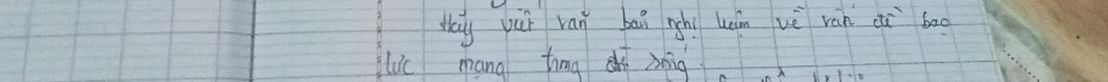 Hãy viết văn bản nghị luận về vấn đề bạo
lực mạng trong đời sống